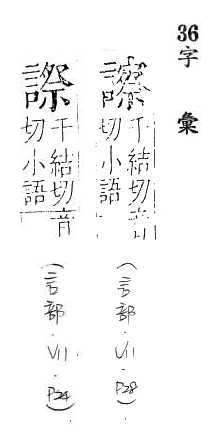 36字 彙
千結切音
切小語
(言部.VII.P28)
千結切音
切小語
(言部.VII.P24)